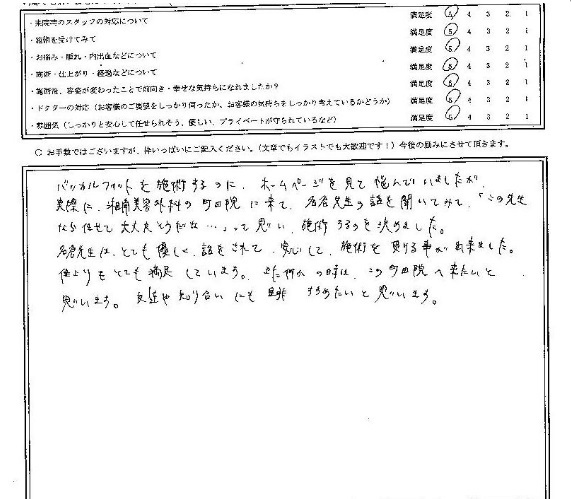 ・来院時のスタッフの対応について 満足度 5 4 3 2 1
・施術を受けてみて 満足度 5 4 3 2 1
・お痛み・腫れ・内出血などについて 満足度 5 4 3 2 1
・施術・仕上がり・経過などについて 満足度 5 4 3 2 1
・施術後、容姿が変わったことで前向き・幸せな気持ちになれましたか? 満足度 5 4 3 2 1
・ドクターの対応(お客様のご要望をしっかり伺ったか、お客様の気持ちをしっかり考えているかどうか) 満足度 5 4 3 2 1
・雰囲気(しっかりと安心して任せられそう、優しい、プライベートが守られているなど) 満足度 5 4 3 2 1
○ お手数ではございますが、枠いっぱいにご記入ください。(文章でもイラストでも大歓迎です!)今後の励みにさせて頂きます。
バッカルファットを施術するのに、ホームページを見て悩んでいましたが、
実際に、湘南美容外科の町田院に来て、名倉先生の話を聞いてみて、「この先生
なら任せて大丈夫そうだな…」って思い、施術するのを決めました。
名倉先生は、とても優しく、話をされて、安心して、施術を受ける事が出来ました。
仕上りもとても満足しています。また何かの時は、この町田院へ来たいと
思います。友達や知り合いにも是非すすめたいと思います。